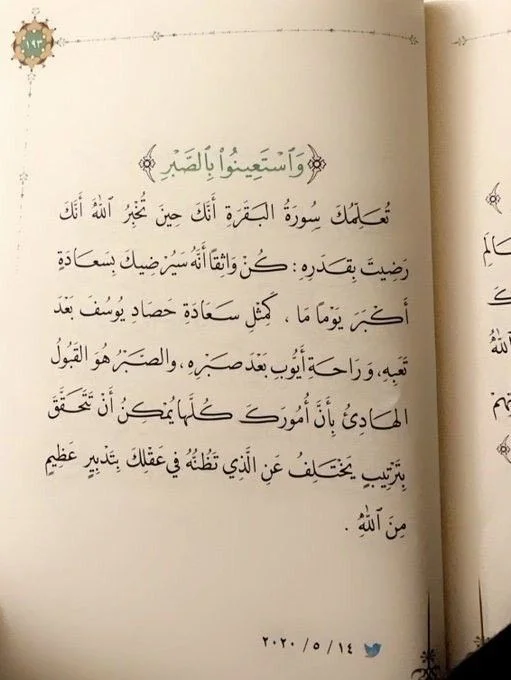 ١٩٣
﴿وَٱسْتَعِينُوا۟ بِٱلصَّبْرِ﴾
تُعَلِّمُكَ سِورَةُ البَقَرَةِ أَنَّكَ حِينَ تُخْبِرُ ٱللَّهَ أَنَّكَ
رَضِيتَ بِقَدَرِهِ : كُنْ وَاثِقًا أَنَّهُ سَيُرْضِيكَ بِسَعَادَةٍ
أَكْبَرَ يَوْمًا مَا ، كَمِثْلِ سَعَادَةِ حَصَادِ يُوسُفَ بَعْدَ
تَعَبِهِ، وَرَاحَةِ أَيُّوبِ بَعْدَ صَبْرِهِ، والصَّبْرُ هُوَ القَبُولُ
الهَادِئُ بِأَنَّ أُمُورَكَ كُلَّهَا يُمْكِنُ أَنْ تَتَحَقَّقَ
بِتَرْتِيبٍ يَخْتَلِفُ عَنِ الَّذِي تَظُنُّهُ فِي عَقْلِكَ بِتَدْبِيرٍ عَظِيمٍ
مِنَ ٱللَّهِ .
١٤ / ٥ / ٢٠٢٠